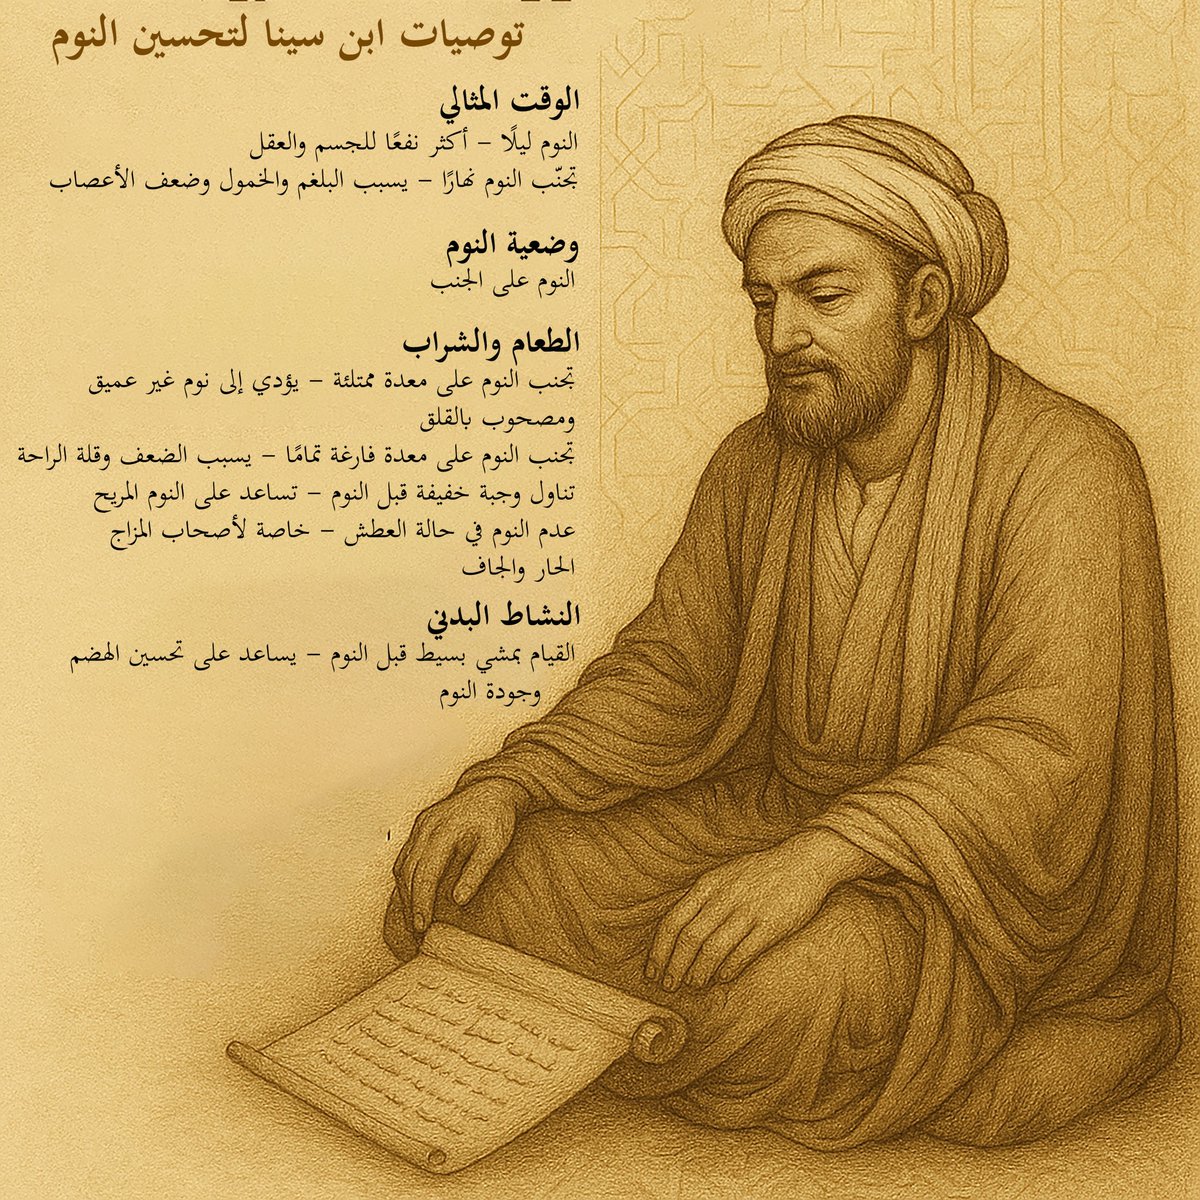 توصيات ابن سينا لتحسين النوم
الوقت المثالي
النوم ليلًا – أكثر نفعًا للجسم والعقل
تجنّب النوم نهارًا – يسبب البلغم والخمول وضعف الأعصاب
وضعية النوم
النوم على الجنب
الطعام والشراب
تجنب النوم على معدة ممتلئة – يؤدي إلى نوم غير عميق
ومصحوب بالقلق
تجنب النوم على معدة فارغة تمامًا – يسبب الضعف وقلة الراحة
تناول وجبة خفيفة قبل النوم – تساعد على النوم المريح
عدم النوم في حالة العطش – خاصة لأصحاب المزاج
الحار والجاف
النشاط البدني
القيام بمشي بسيط قبل النوم – يساعد على تحسين الهضم
وجودة النوم